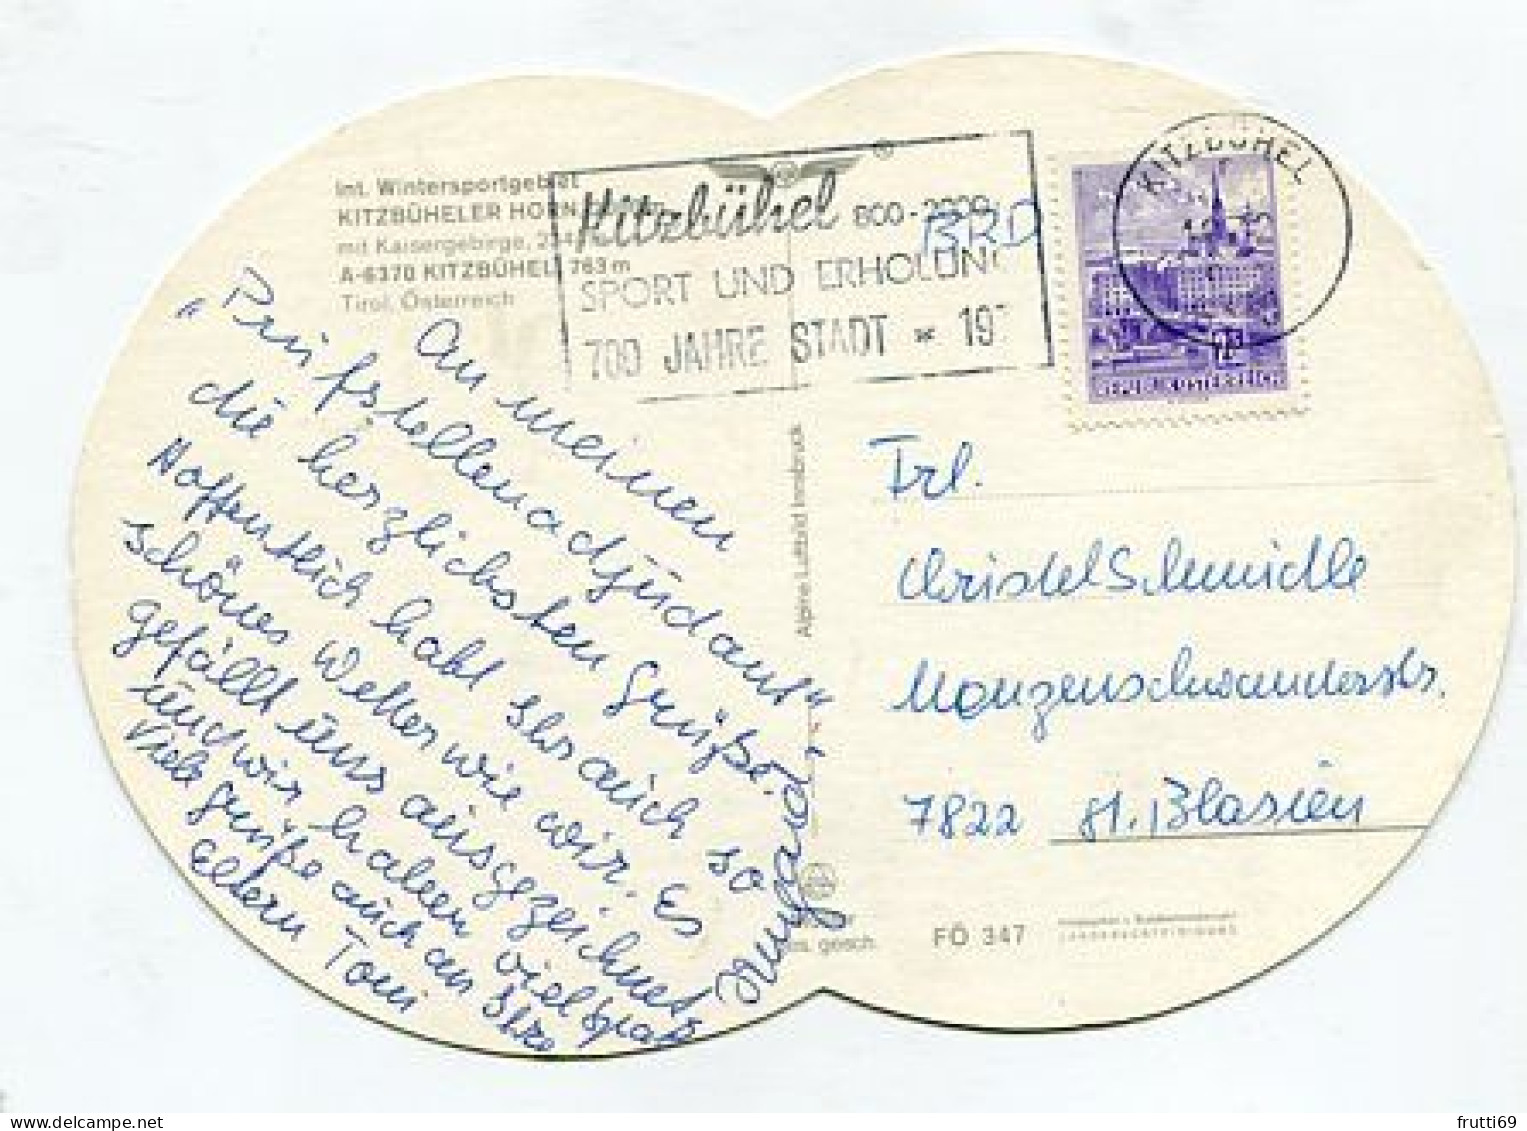 Int. Wintersportgebiet
KITZBÜHELER HORN,
mit Kaisergebirge,
A-6370 KITZBÜHEL, 763 m
Tirol, Österreich
Kitzbühel 800-2000
SPORT UND ERHOLUNG
700 JAHRE STADT * 197
BRD
KITZBÜHEL
An meinen
"Prüfstellenadjudant"
die herzlichsten Grüße.
Hoffentlich habt Ihr auch so
schönes Wetter wie wir. Es
gefällt uns ausgezeichnet,
und wir haben viel Spaß
Viele Grüße auch an Ihre
Eltern Toni
Irmgard
Alpine Luftbild Innsbruck
Frl.
Christel Schmidle
Menzenschwanderstr.
7822 St. Blasien
ges. gesch.
FÖ 347
frutti69